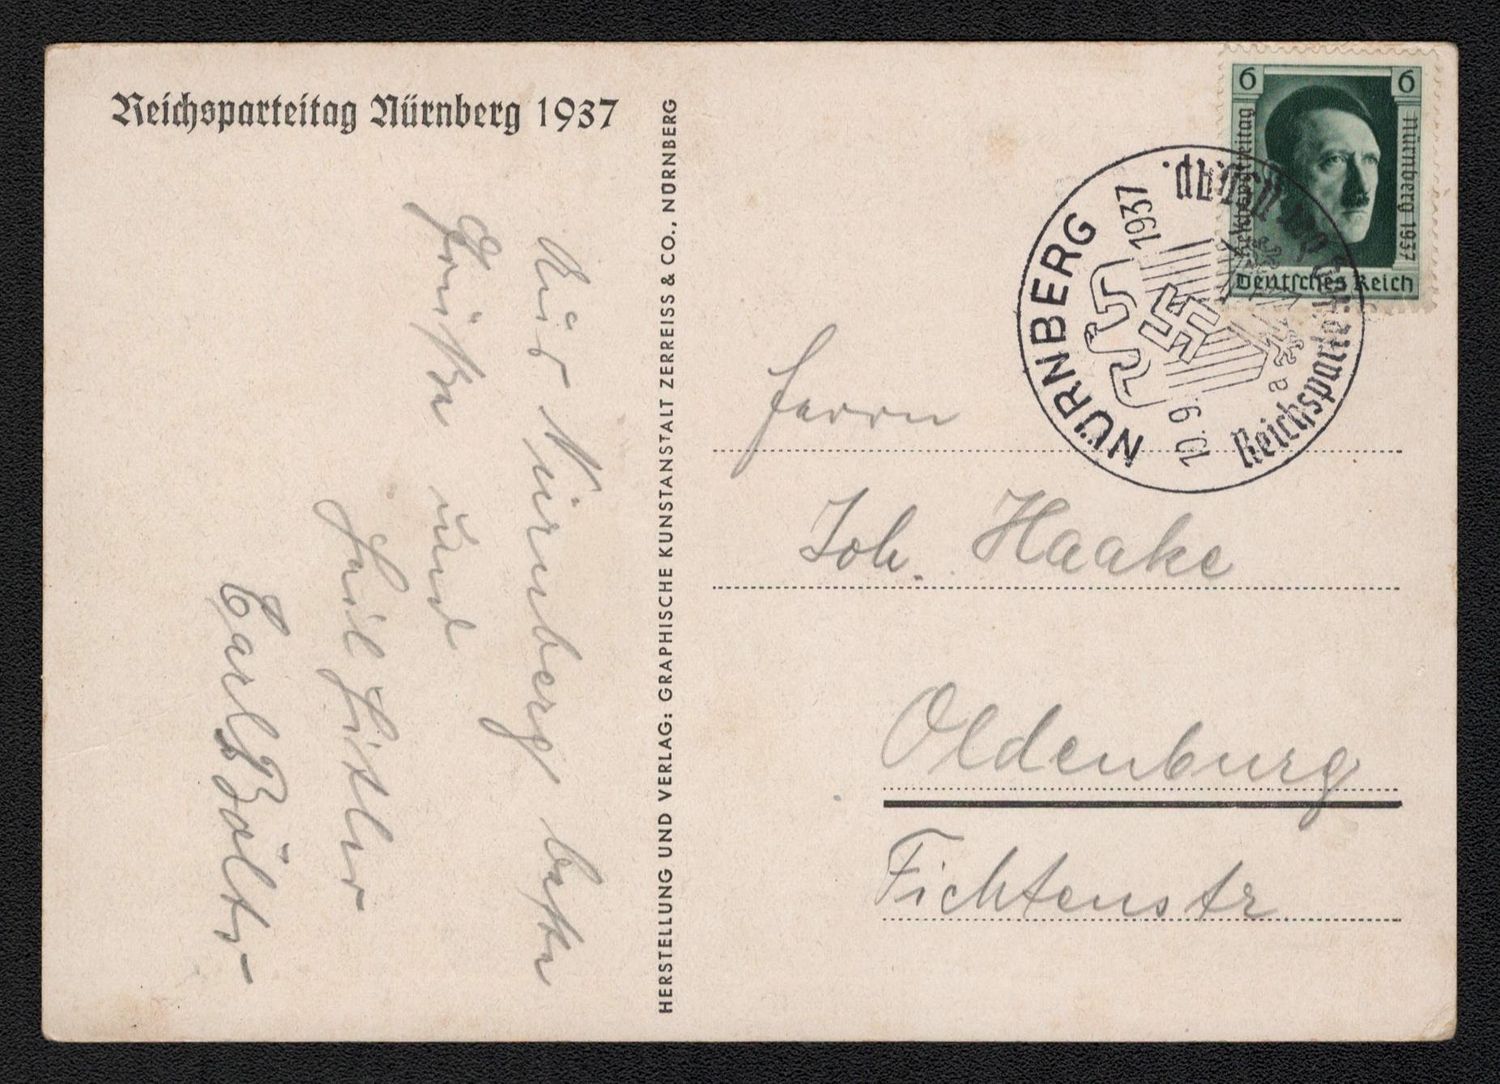 Reichsparteitag Nürnberg 1937
Aus Nürnberg beste
Grüße und
Heil Hitler
Carl Bölts
HERSTELLUNG UND VERLAG: GRAPHISCHE KUNSTANSTALT ZERREISS & CO., NÜRNBERG
6 6
Reichsparteitag
Nürnberg 1937
Deutsches Reich
NÜRNBERG
1937
10.9.
a
Reichsparteitag der NSDAP.
Herrn
Joh. Haake
Oldenburg
Fichtenstr